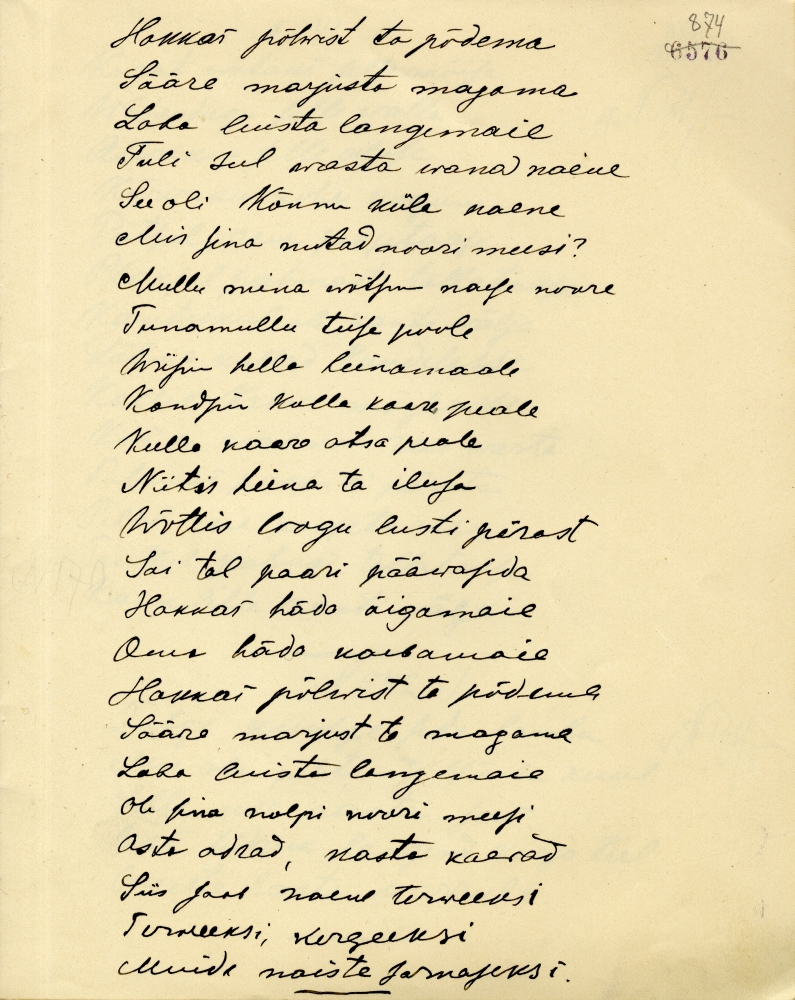 874
6576
Hakkas põlwist ta põdema
Sääre marjusta magama
Laba luista langemaie
Tuli sul wasta wana naene
See oli Kõnnu küla naene
Mis sina nutad noori meesi?
Mullu mina wõtsin naese noore
Tunamullu teise poole
Wiisin hella heinamaale
Kandsin kulla kaare peale
Kulla kaare otsa peale
Niitis heina ta ilusa
Wõttis loogu lusti pärast
Sai tal paari pääwasida
Hakkas häda äigamaie
Oma häda kaebamaie
Hakkas põlwist ta põdema
Sääre marjust ta magama
Laba luista langemaie
Oh sina nolpi noori meesi
Osta odrad, nosta kaerad
Siis saab naene terweeksi
Terweeksi, kergeeksi
Muida naiste sarnaseksi.